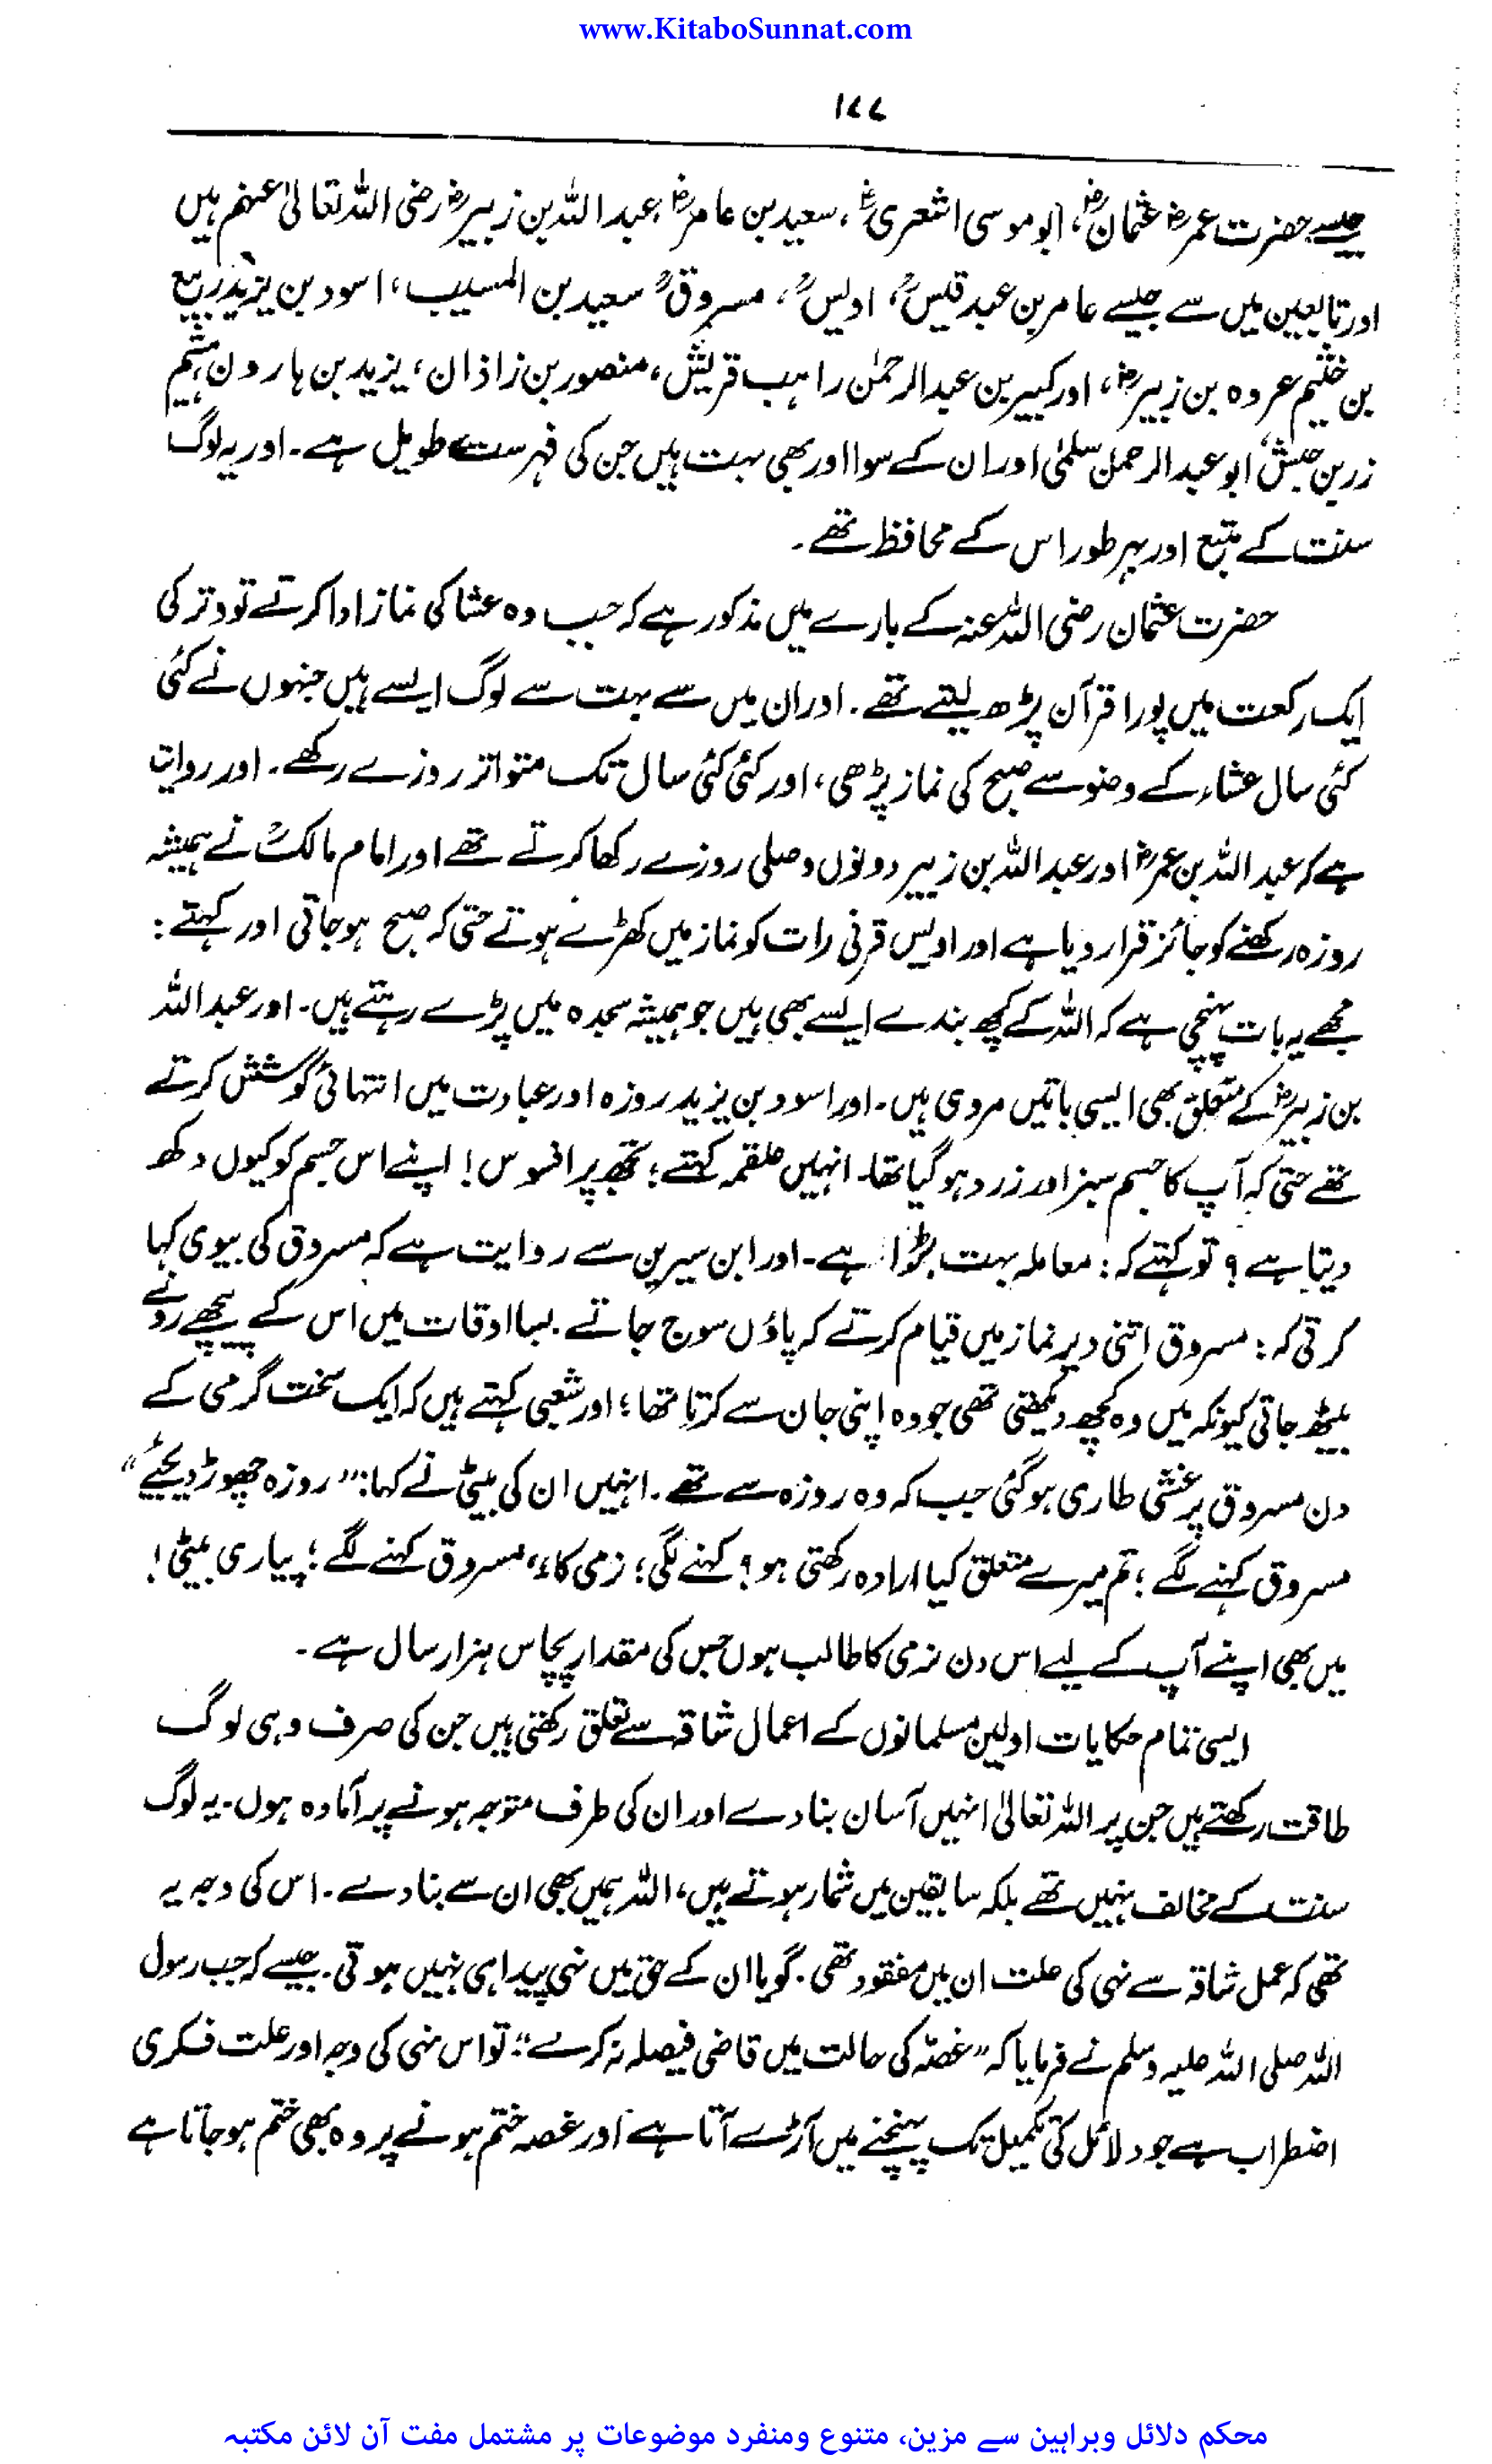 www.KitaboSunnat.com
۱۷۷
جیسے حضرت عمرؓ عثمانؓ، ابو موسی اشعریؓ، سعید بن عامرؓ، عبد اللہ بن زبیرؓ رضی اللہ تعالیٰ عنہم ہیں
اور تابعین میں سے جیسے عامر بن عبد قیسؒ، اویسؒ، مسروقؒ سعید بن المسیب، اسود بن یزید ربیع
بن خثیم عروہ بن زبیرؓ، اور کبیر بن عبد الرحمٰن راہب قریش، منصور بن زاذان، یزید بن ہارون ہشیم
زر بن حبیشؒ ابو عبد الرحمٰن سلمیٰ اور ان کے سوا اور بھی بہت ہیں جن کی فہرست طویل ہے۔ اور یہ لوگ
سنت کے متبع اور بہر طور اس کے محافظ تھے۔
حضرت عثمان رضی اللہ عنہ کے بارے میں مذکور ہے کہ جب وہ عشا کی نماز ادا کرتے تو وتر کی
ایک رکعت میں پورا قرآن پڑھ لیتے تھے۔ اور ان میں سے بہت سے لوگ ایسے ہیں جنہوں نے کئی
کئی سال عشاء کے وضو سے صبح کی نماز پڑھی، اور کئی کئی سال تک متواتر روزے رکھے۔ اور روایت
ہے کہ عبد اللہ بن عمرؓ اور عبد اللہ بن زبیر دونوں وصلی روزے رکھا کرتے تھے اور امام مالکؒ نے ہمیشہ
روزہ رکھنے کو جائز قرار دیا ہے اور اویس قرنی رات کو نماز میں کھڑے ہوتے حتیٰ کہ صبح ہو جاتی اور کہتے:
مجھے یہ بات پہنچی ہے کہ اللہ کے کچھ بندے ایسے بھی ہیں جو ہمیشہ سجدہ میں پڑے رہتے ہیں۔ اور عبد اللہ
بن زبیرؓ کے متعلق بھی ایسی باتیں مروی ہیں۔ اور اسود بن یزید روزہ اور عبادت میں انتہائی کوشش کرتے
تھے حتیٰ کہ آپ کا جسم سبز اور زرد ہو گیا تھا۔ انہیں علقمہ کہتے؛ تجھ پر افسوس! اپنے اس جسم کو کیوں دکھ
دیتا ہے؟ تو کہتے کہ: معاملہ بہت بڑا ہے۔ اور ابن سیرین سے روایت ہے کہ مسروق کی بیوی کہا
کرتی کہ: مسروق اتنی دیر نماز میں قیام کرتے کہ پاؤں سوج جاتے۔ بسا اوقات میں اس کے پیچھے رونے
بیٹھ جاتی کیونکہ میں وہ کچھ دیکھتی تھی جو وہ اپنی جان سے کرتا تھا؛ اور شعبی کہتے ہیں کہ ایک سخت گرمی کے
دن مسروق پر غشی طاری ہو گئی جب کہ وہ روزہ سے تھے۔ انہیں ان کی بیٹی نے کہا: ”روزہ چھوڑ دیجیئے“
مسروق کہنے لگے؛ تم میرے متعلق کیا ارادہ رکھتی ہو؟ کہنے لگی؛ نرمی کا، مسروق کہنے لگے؛ پیاری بیٹی!
میں بھی اپنے آپ کے لیے اس دن نرمی کا طالب ہوں جس کی مقدار پچاس ہزار سال ہے۔
ایسی تمام حکایات اولین مسلمانوں کے اعمال شاقہ سے تعلق رکھتی ہیں جن کی صرف وہی لوگ
طاقت رکھتے ہیں جن پر اللہ تعالیٰ انہیں آسان بنا دے اور ان کی طرف متوجہ ہونے پر آمادہ ہوں۔ یہ لوگ
سنت کے مخالف نہیں تھے بلکہ سابقین میں شمار ہوتے ہیں، اللہ ہمیں بھی ان سے بنا دے۔ اس کی وجہ یہ
تھی کہ عمل شاقہ سے نہی کی علت ان میں مفقود تھی۔ گویا ان کے حق میں نہی پیدا ہی نہیں ہوتی۔ جیسے کہ جب رسول
اللہ صلی اللہ علیہ وسلم نے فرمایا کہ ”غصّہ کی حالت میں قاضی فیصلہ نہ کرے“؛ تو اس نہی کی وجہ اور علت فکری
اضطراب ہے جو دلائل کی تکمیل تک پہنچنے میں آڑے آتا ہے اور غصہ ختم ہونے پر وہ بھی ختم ہو جاتا ہے
محکم دلائل وبراہین سے مزین، متنوع ومنفرد موضوعات پر مشتمل مفت آن لائن مکتبہ